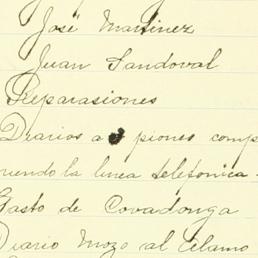 José Martinez
Juan Sandoval
Reparasiones
Diarios a piones comp
uendo la linea telefonica
Gasto de Covadonga
Diario Mozo al Alamo